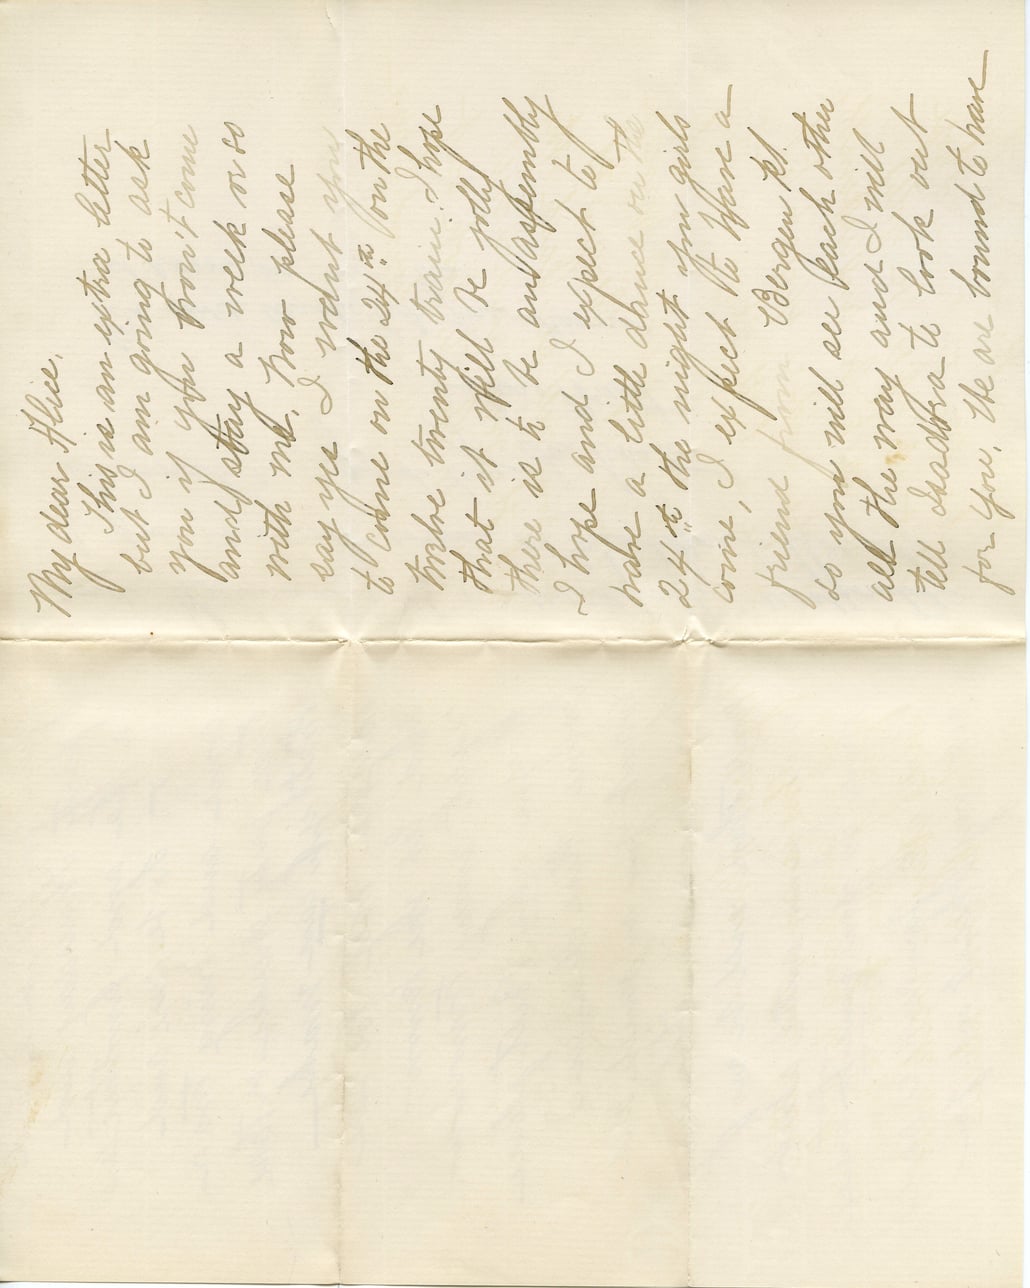 My dear Alice,
This is an extra letter
but I am going to ask
you if you won't come
and stay a week or so
with me. Now please
say yes I want you
to come on the 24th on the
twelve twenty train. I hope
that it will be jolly
there is to be an assembly
I hope and I expect to
have a little dance on the
24th the night you girls
come, I expect to have a
friend from Bergen Pt.
so you will see each other
all the way and I will
tell Isadora to look out
for you, We are bound to have